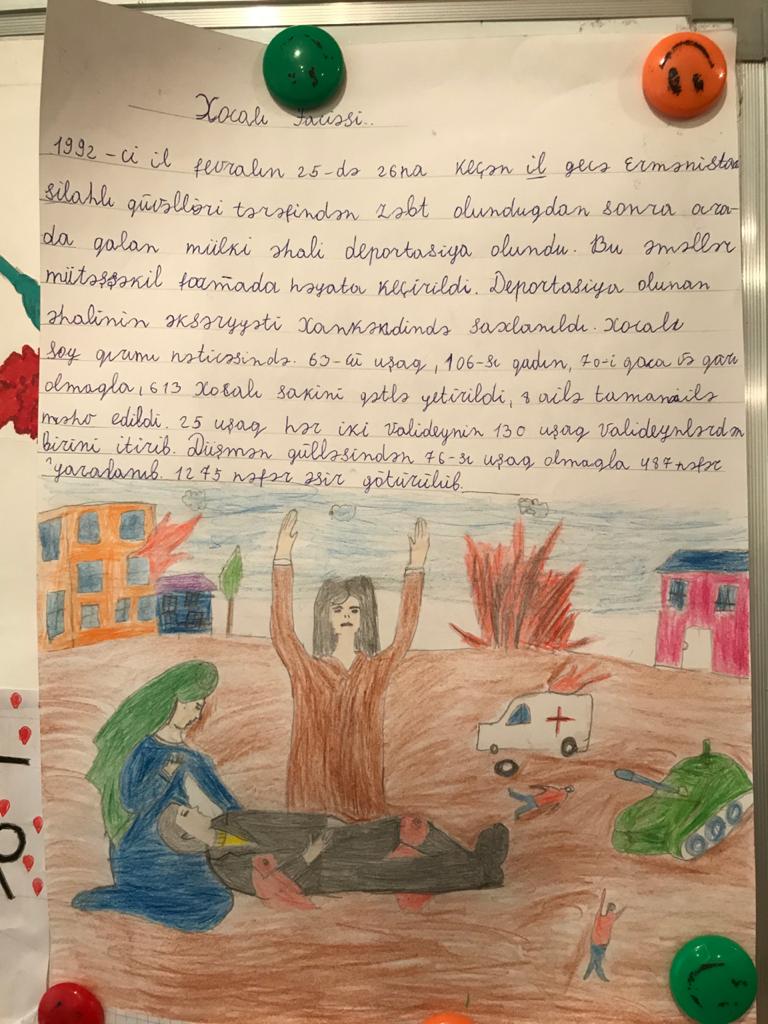 Xocalı Faciəsi..
1992-ci il fevralın 25-də 26na keçən il gecə Ermənistan
silahlı güvəlləri tərəfindən zəbt olundugdan sonra ara-
da galan mülki əhali deportasiya olundu. Bu əməllər
mütəşşəkil formada həyata keçirildi. Deportasiya olunan
əhalinin əksəryyəti Xankəndində saxlanıldı. Xocalı
soy gırımı nəticəsində. 63-ü uşag, 106-sı gadın, 70-i goca və garı
olmagla, 613 Xocalı sakini gətlə yetirildi, 8 ailə tamamilə
məhv edildi. 25 uşag hər iki valideynin 130 uşag valideynlərdən
birini itirib. Düşmən gülləsindən 76-sı uşag olmagla 487 nəfər
yaralanıb. 1275 nəfər əsir götürülüb.